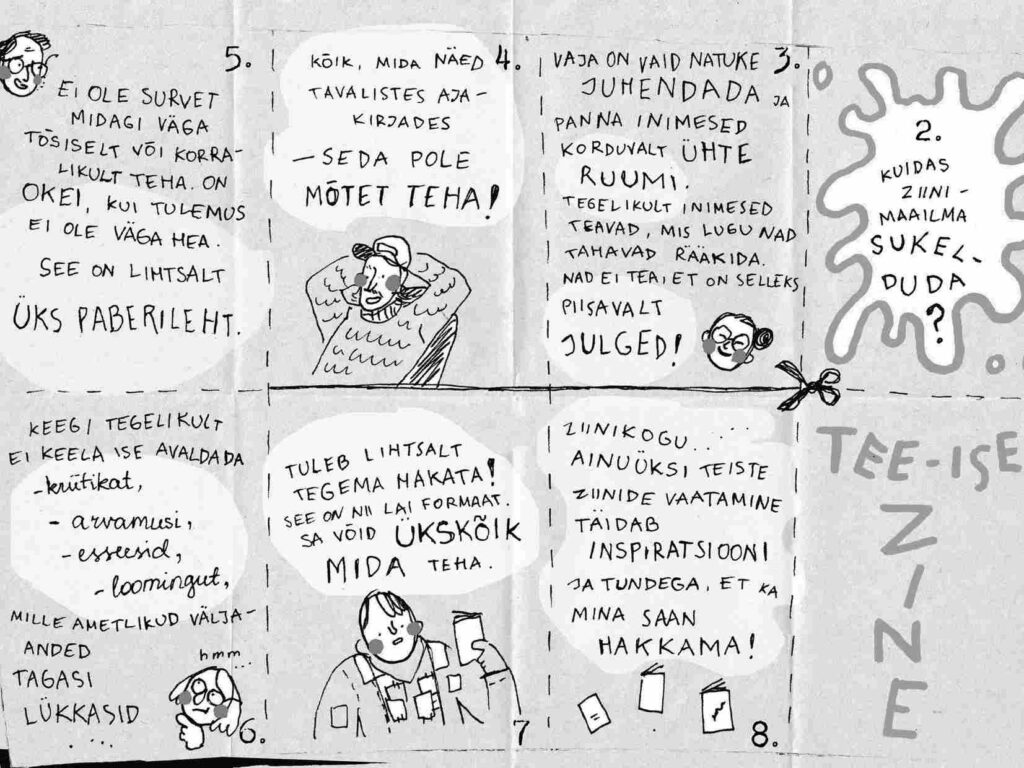 5.
EI OLE SURVET
MIDAGI VÄGA
TÕSISELT VÕI KORRA-
LIKULT TEHA. ON
OKEI, KUI TULEMUS
EI OLE VÄGA HEA.
SEE ON LIHTSALT
ÜKS PABERILEHT.
4.
KÕIK, MIDA NÄED
TAVALISTES AJA-
KIRJADES
—SEDA POLE
MÕTET TEHA!
3.
VAJA ON VAID NATUKE
JUHENDADA JA
PANNA INIMESED
KORDUVALT ÜHTE
RUUMI.
TEGELIKULT INIMESED
TEAVAD, MIS LUGU NAD
TAHAVAD RÄÄKIDA.
NAD EI TEA, ET ON SELLEKS
PIISAVALT
JULGED!
2.
KUIDAS
ZIINI-
MAAILMA
SUKEL-
DUDA
?
KEEGI TEGELIKULT
EI KEELA ISE AVALDADA
-kriitikat,
- arvamusi,
- esseesid,
- loomingut,
MILLE AMETLIKUD VÄLJA-
ANDED
TAGASI
LÜKKASID
....
hmm...
6.
TULEB LIHTSALT
TEGEMA HAKATA!
SEE ON NII LAI FORMAAT.
SA VÕID ÜKSKÕIK
MIDA TEHA.
7
ZIINIKOGU.....
AINUÜKSI TEISTE
ZIINIDE VAATAMINE
TÄIDAB
INSPIRATSIOONI
JA TUNDEGA, ET KA
MINA SAAN
HAKKAMA!
8.
TEE-ISE
ZINE